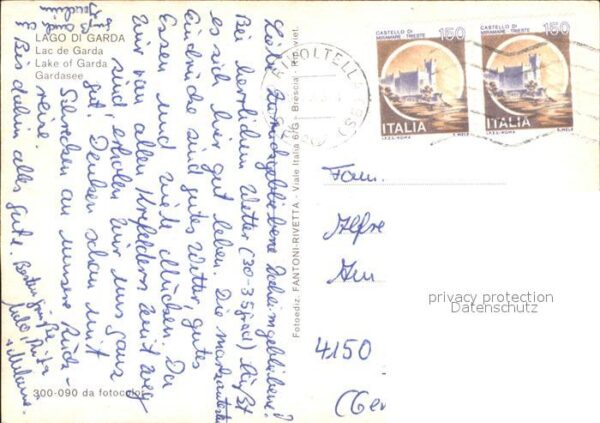 LAGO DI GARDA
Lac de Garda
Lake of Garda
Gardasee
300-090 da fotocolor
Fotoediz. FANTONI-RIVETTA - Viale Italia 6/G - Brescia - Rip. viet.
Liebe
Bei herrlichem Wetter (30-35 Grad) läßt
es sich hier gut leben. Die
Eindrücke sind gutes Wetter, gutes
Essen und viele Mücken. Da
wir von allen Krefeldern weit weg
sind, erholen wir uns ganz
gut. Denken schon mit
Schrecken an unsere Rück-
reise.
Bis dahin alles gute. Beste Grüße
CASTELLO DI
MIRAMARE TRIESTE
150
ITALIA
I.P.Z.S. - ROMA
E. MELE
CASTELLO DI
MIRAMARE TRIESTE
150
ITALIA
I.P.Z.S. - ROMA
E. MELE
Fam.
Alfre
Am
4150
(Ger
privacy protection
Datenschutz